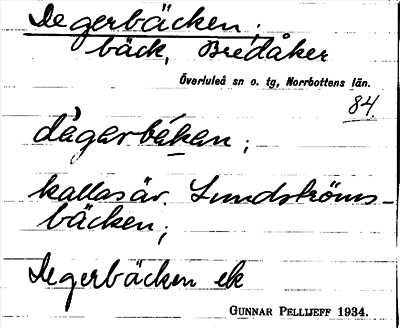 Degerbäcken;
bäck, Bredåker
Överluleå sn o. tg, Norrbottens län.
84.
dègerbékan;
kallas äv. Lundströms-
bäcken;
Degerbäcken ek
GUNNAR PELLIJEFF 1934.